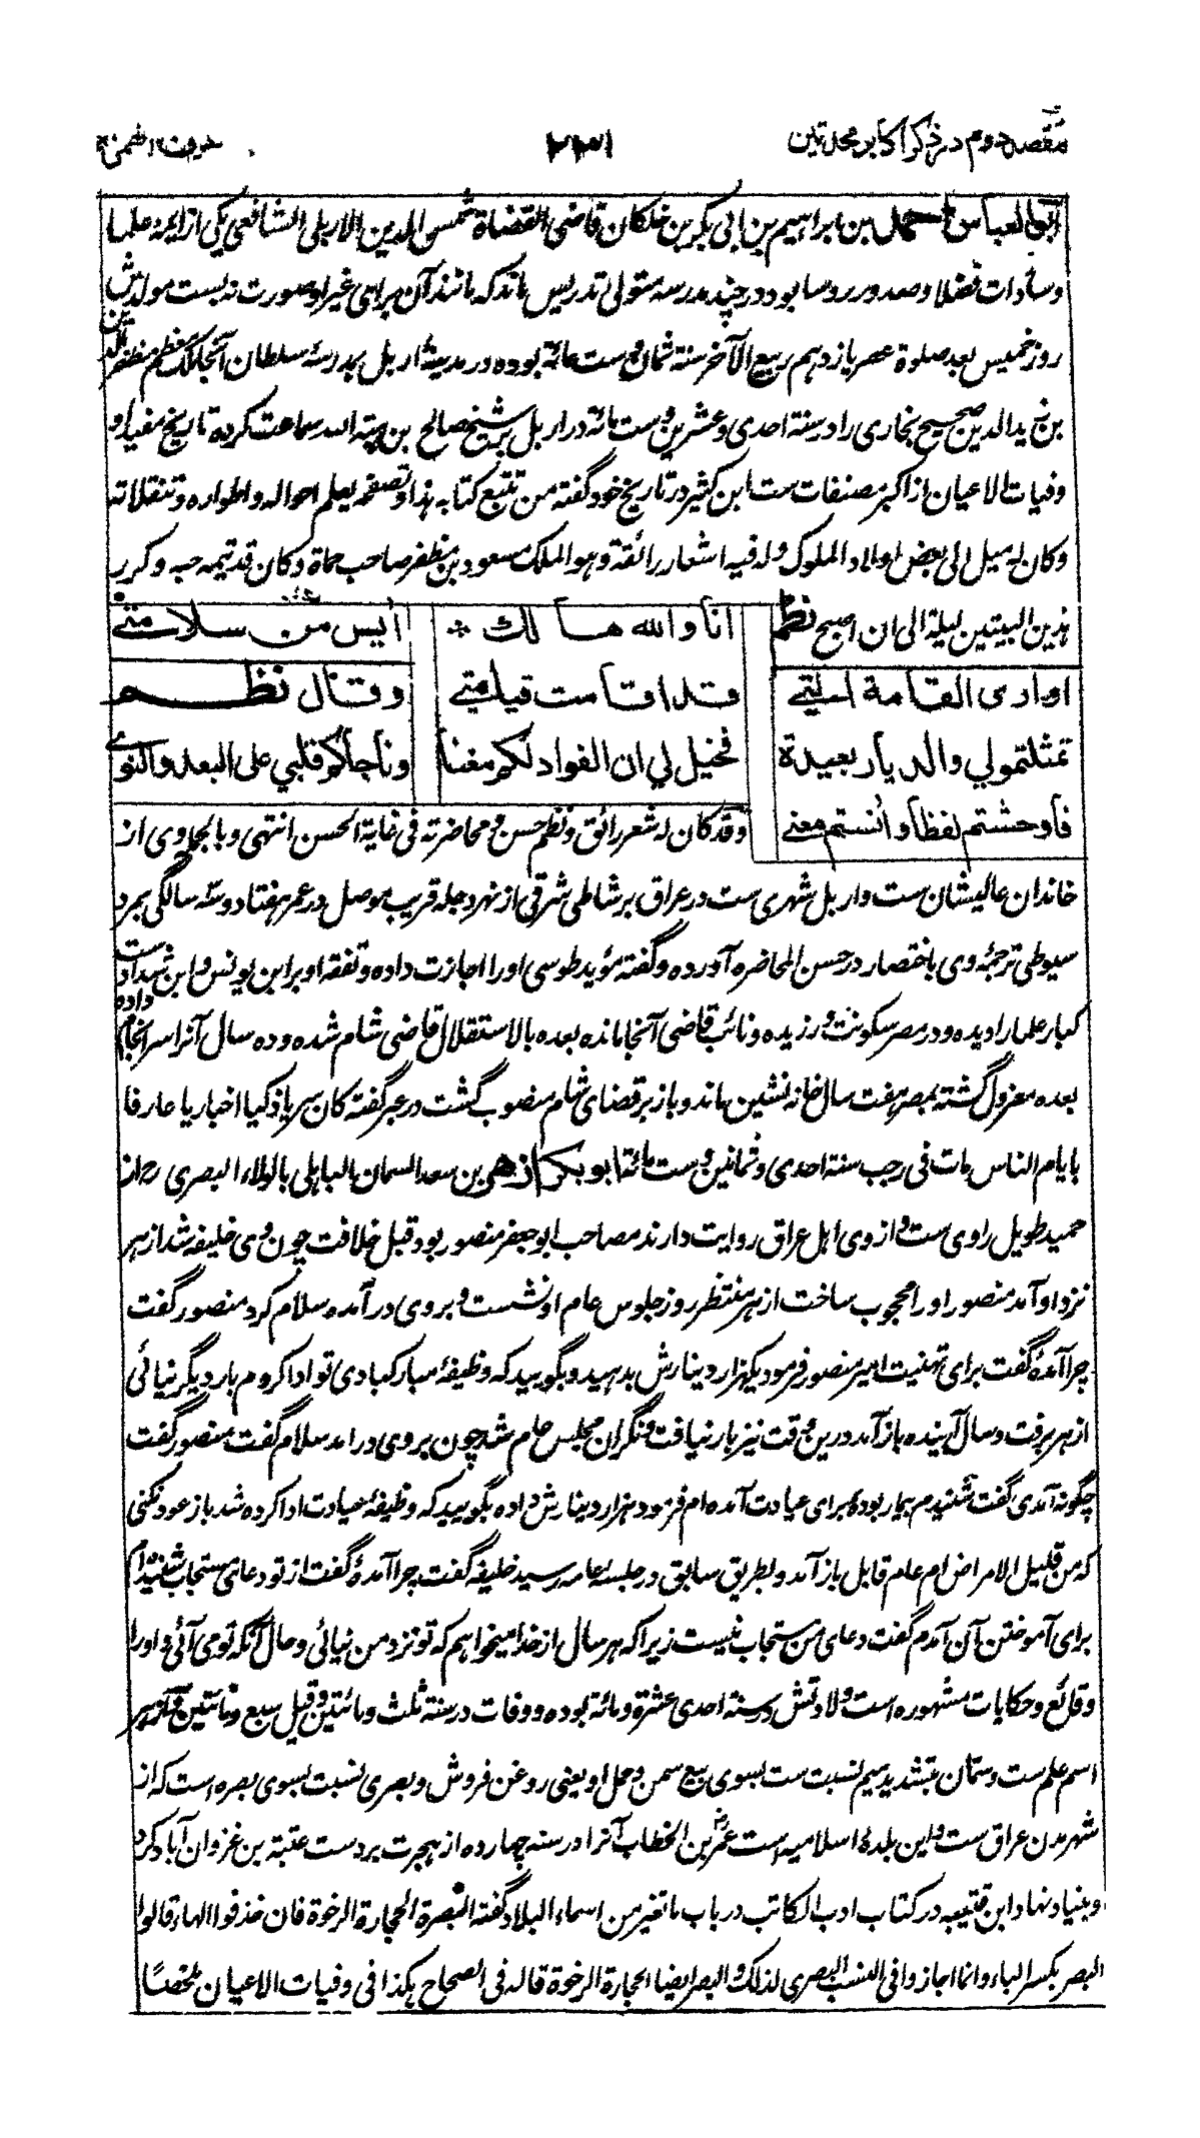 مقصد دوم در ذکر اکابر محدثین
۲۳۱
حرف الهمزة
ابو العباس احمد بن ابراهیم بن ابی بکر بن خلکان قاضی القضاة شمس الدین الاربلی الشافعی یکی از ایمهٔ علما
وسادات فضلا وصدور روسا بود در چند مدرسه متولی تدریس ماند که مانند آن برای غیر او صورت نه بست مولدش
روز خمیس بعد صلوة عصر یازدهم ربیع الآخر سنة ثمان وست مائة بوده در مدینهٔ اربل بمدرسهٔ سلطان آنجا ملک معظم مظفر الدین
بن زید الدین صحیح بخاری را در سنة احدی وعشرین وست مائة در اربل بر شیخ صالح بن هبة الله سماعت کرده تاریخ مفید او
وفیات الاعیان از اکبر مصنفات ست ابن کثیر در تاریخ خود گفته من تتبع کتابه هذا وتصفحه یعلم احواله واطواره وتنقلاته
وکان له میل الی بعض اولاد الملوک وله فیه اشعار رائقة وهو الملک مسعود بن مظفر صاحب حماة وکان قد تیمه حبه وکرر
هذین البیتین لیلة الی ان اصبح نظم
انا والله هالك * آیس من سلامتے
او اری القامة التے
قد اقامت قیامتے
وقال نظم
تمثلتمو لي والدیار بعیدة
فخیل لي ان الفواد لکم مغنا
وناجاکم قلبي علی البعد والنوی
فاوحشتم لفظا وأنستم معنے
وقد کان له شعر رائق ونظم حسن ومحاضرته فی غایة الحسن انتهی وبالجمله وی از
خاندان عالیشان ست واربل شهری ست در عراق بر شاطی شرقی از نهر دجله قریب موصل در عمر هفتاد وسه سالگی بمرد
سیوطی ترجمهٔ وی باختصار در حسن المحاضره آورده وگفته مؤید طوسی او را اجازت داده وتفقه او بر ابن یونس وابن شداد ست
کبار علما را دیده ودر مصر سکونت ورزیده ونائب قاضی آنجا مانده بعده بالاستقلال قاضی شام شده وده سال آنرا سرانجام داده
بعده معزول گشته بمصر هفت سال خانه نشین ماند وباز بر قضای شام منصوب گشت در عبر گفته کان سریا ذکیا اخباریا عارفا
بایام الناس مات فی رجب سنة احدی وثمانین وست مائة ابو بکر ازهر بن سعد السمان الباهلی بالولاء البصری رح از
حمید طویل راوی ست واز وی اهل عراق روایت دارند مصاحب ابو جعفر منصور بود قبل خلافت چون وی خلیفه شد ازهر
نزد او آمد منصور او را محجوب ساخت ازهر منتظر روز جلوس عام او نشست وبروی در آمده سلام کرد منصور گفت
چرا آمدهٔ گفت برای تهنیت امیر منصور فرمود یکهزار دینارش بدهید وبگویید که وظیفهٔ مبارکبادی تو ادا کردم بار دیگر نیائی
ازهر برفت وسال آینده باز آمد درین وقت نیز بار نیافت ونگران مجلس عام شد چون بروی در آمد سلام گفت منصور گفت
چگونه آمدی گفت شنیدم بیمار بودهٔ برای عیادت آمده ام فرمود هزار دینارش داده بگویید که وظیفهٔ عیادت ادا کرده شد باز عود نکنی
که من قلیل الامراض ام عام قابل باز آمد وبطریق سابق در جلسهٔ عامه رسید خلیفه گفت چرا آمدهٔ گفت از تو دعائی مستجاب شنیده ام
برای آموختن آن آمدم گفت دعای من مستجاب نیست زیرا که هر سال از خدا میخواهم که تو نزد من نیائی وحال آنکه تو می آئی واورا
وقائع وحکایات مشهوره است ولادتش در سنة احدی عشرة ومائة بوده ووفات در سنة ثلث ومائتین وقیل سبع ومائتین وازهر
اسم علم ست وسمان بتشدید میم نسبت ست بسوی بیع سمن وحمل او یعنی روغن فروش وبصری نسبت بسوی بصره است که از
شهر مدن عراق ست واین بلدهٔ اسلامیه است عمر بن الخطاب آنرا در سنه چهارده از هجرت بر دست عتبة بن غزوان آباد کرد
وبنیاد نهاد ابن قتیبه در کتاب ادب الکاتب در باب ما تغیر من اسماء البلاد گفته البصرة الحجارة الرخوة فان حذفوا الهاء قالوا
البصر بکسر الباء وانما اجازوا فی النسب البصری لذلک والبصر ایضا الحجارة الرخوة قاله فی الصحاح هکذا فی وفیات الاعیان ملخصا